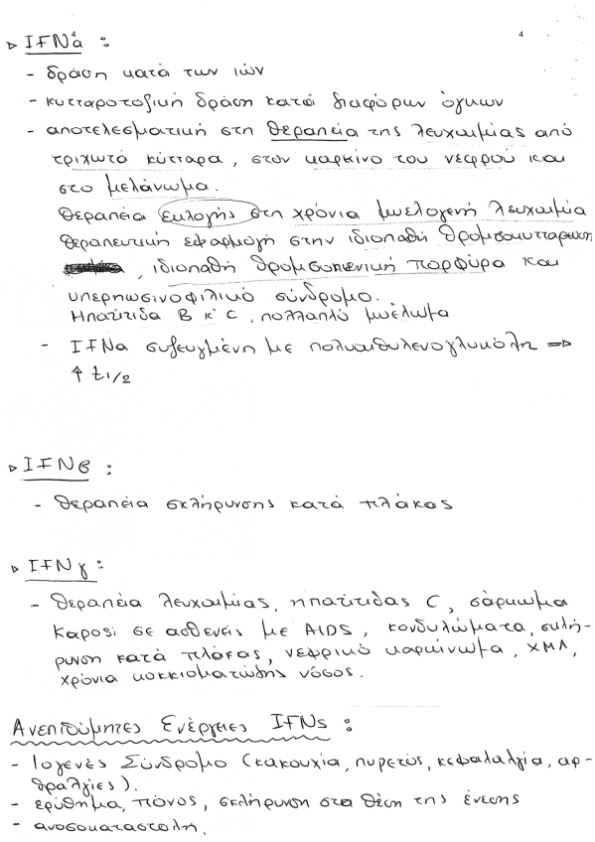 4
▹ IFNα :
- δράση κατά των ιών
- κυτταροτοξική δράση κατά διαφόρων όγκων
- αποτελεσματική στη θεραπεία της λευχαιμίας από
τριχωτά κύτταρα, στον καρκίνο του νεφρού και
στο μελάνωμα.
θεραπεία εκλογής στη χρόνια μυελογενή λευχαιμία
θεραπευτική εφαρμογή στην ιδιοπαθή
, ιδιοπαθή θρομβοπενική πορφύρα και
υπερηωσινοφιλικό σύνδρομο.
Ηπατίτιδα B κ' C, πολλαπλό μυέλωμα
- IFNα συζευγμένη με πολυαιθυλενογλυκόλη ⇒
↑ t1/2
▹ IFNβ :
- θεραπεία σκλήρυνσης κατά πλάκας
▹ IFNγ :
- θεραπεία λευχαιμίας, ηπατίτιδας C, σάρκωμα
Kaposi σε ασθενείς με AIDS, κονδυλώματα, σκλή-
ρυνση κατά πλάκας, νεφρικό καρκίνωμα, ΧΜΛ,
χρόνια κοκκιοματώδης νόσος.
Ανεπιθύμητες Ενέργειες IFNs :
- Ιογενές Σύνδρομο (κακουχία, πυρετός, κεφαλαλγία, αρ-
θραλγίες).
- ερύθημα, πόνος, σκλήρυνση στη θέση της ένεσης
- ανοσοκαταστολή.